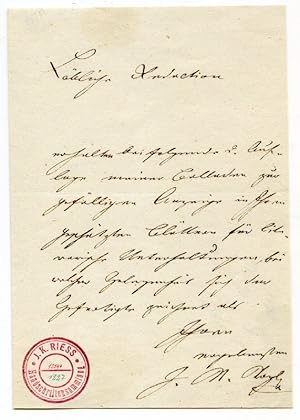 Löbliche Redaction
erhalten beifolgende 2. Auf-
lage meiner Balladen zur
gefälligen Anzeige in Ihren
geschätzten Blättern für lit-
erarische Unterhaltungen, bei
welcher Gelegenheit sich der
Gefertigte zeichnet als
Ihren
ergebensten
J. N.
J. K. RIESS
Handschriftensammlung